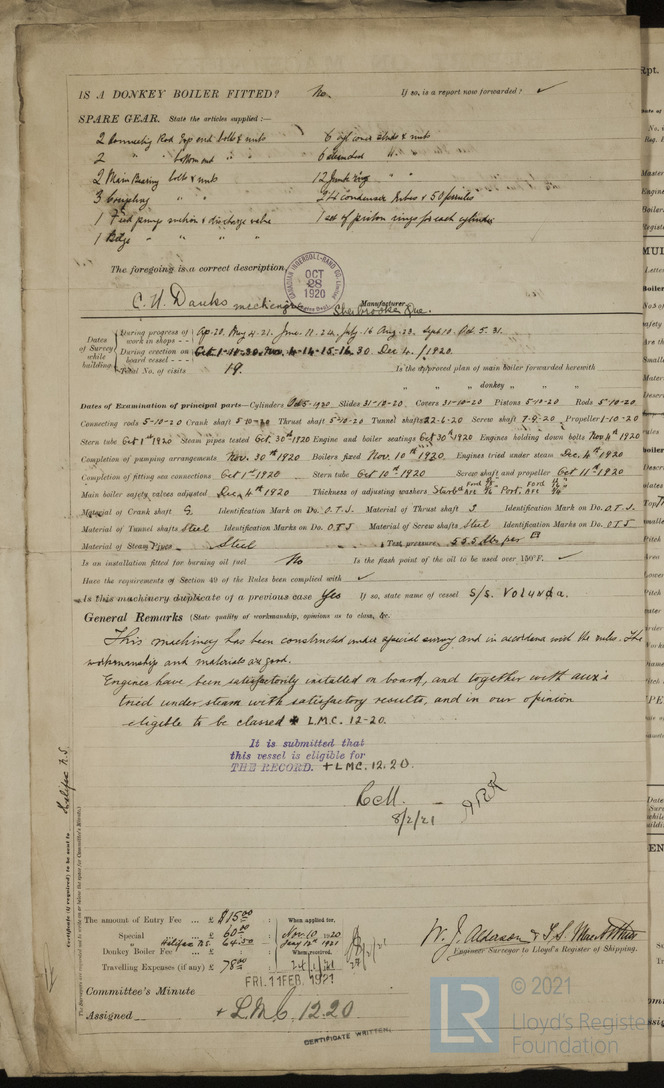 IS A DONKEY BOILER FITTED? No. If so, is a report now forwarded? ✓
SPARE GEAR. State the articles supplied:—
2 Connecting Rod Top end bolts & nuts 6 cyl cover studs & nuts
2 " " bottom end " "
2 Main Bearing bolts & nuts 12 Junk ring " "
3 Coupling " " 24 condenser tubes & 50 ferrules
1 Feed pump suction & discharge valve 1 set of piston rings for each cylinder
1 Bilge " " " "
The foregoing is a correct description
CANADIAN INGERSOLL-RAND CO.
OCT
28
1920
Manufacturer.
Sherbrooke Que.
Dates of Survey while building
During progress of work in shops - - Ap. 20. May 4-21. June 11. 24. July. 16 Aug. 23. Sept 10. Oct. 5. 31.
During erection on board vessel - - - Oct. 1-10-30. Nov. 4-14-15-16. 30. Dec 4. /1920.
Total No. of visits 19. Is the approved plan of main boiler forwarded herewith
" " " donkey " " "
Dates of Examination of principal parts—Cylinders Oct 5-1920 Slides 31-10-20 Covers 31-10-20 Pistons 5-10-20 Rods 5-10-20
Connecting rods 5-10-20 Crank shaft 5-10-20 Thrust shaft 5-10-20 Tunnel shafts 22-6-20 Screw shaft 7-9-20 Propeller 1-10-20
Stern tube Oct 1st 1920 Steam pipes tested Oct. 30th 1920 Engine and boiler seatings Oct 30th 1920 Engines holding down bolts Nov 4th 1920
Completion of pumping arrangements Nov. 30th 1920 Boilers fixed Nov. 10th 1920 Engines tried under steam Dec. 4th 1920
Completion of fitting sea connections Oct 1st 1920 Stern tube Oct 10th 1920 Screw shaft and propeller Oct 11th 1920
Main boiler safety valves adjusted Dec. 4th 1920 Thickness of adjusting washers
Material of Crank shaft S. Identification Mark on Do. O.T.J. Material of Thrust shaft S. Identification Mark on Do. O.T.J.
Material of Tunnel shafts Steel Identification Marks on Do. O.T.J Material of Screw shafts Steel Identification Marks on Do. O.T.J
Material of Steam Pipes Steel Test pressure 555 lbs per □"
Is an installation fitted for burning oil fuel No Is the flash point of the oil to be used over 150°F. ✓
Have the requirements of Section 49 of the Rules been complied with ✓
Is this machinery duplicate of a previous case Yes If so, state name of vessel S/S. Volunda.
General Remarks (State quality of workmanship, opinions as to class, &c.
This machinery has been constructed under special survey and in accordance with the rules. The
workmanship and materials are good.
Engines have been satisfactorily installed on board, and together with aux's
tried under steam with satisfactory results, and in our opinion
eligible to be classed ✠ L.M.C. 12-20.
It is submitted that
this vessel is eligible for
THE RECORD. + LMC. 12.20.
8/2/21
Halifax N.S.
Certificate (if required) to be sent to
The Surveyors are requested not to write on or below the space for Committee's Minute.
The amount of Entry Fee ... £ $15.00 When applied for,
Special ... £ 60.00 Nov. 10. 1920
Halifax N.S. 64.50 Jany 12th 1921
Donkey Boiler Fee ... £ When received,
Travelling Expenses (if any) £ 78.00
FRI. 11 FEB. 1921
Engineer Surveyor to Lloyd's Register of Shipping.
Committee's Minute
Assigned + L.M.C. 12.20
CERTIFICATE WRITTEN.
LR
© 2021
Lloyd's Register
Foundation